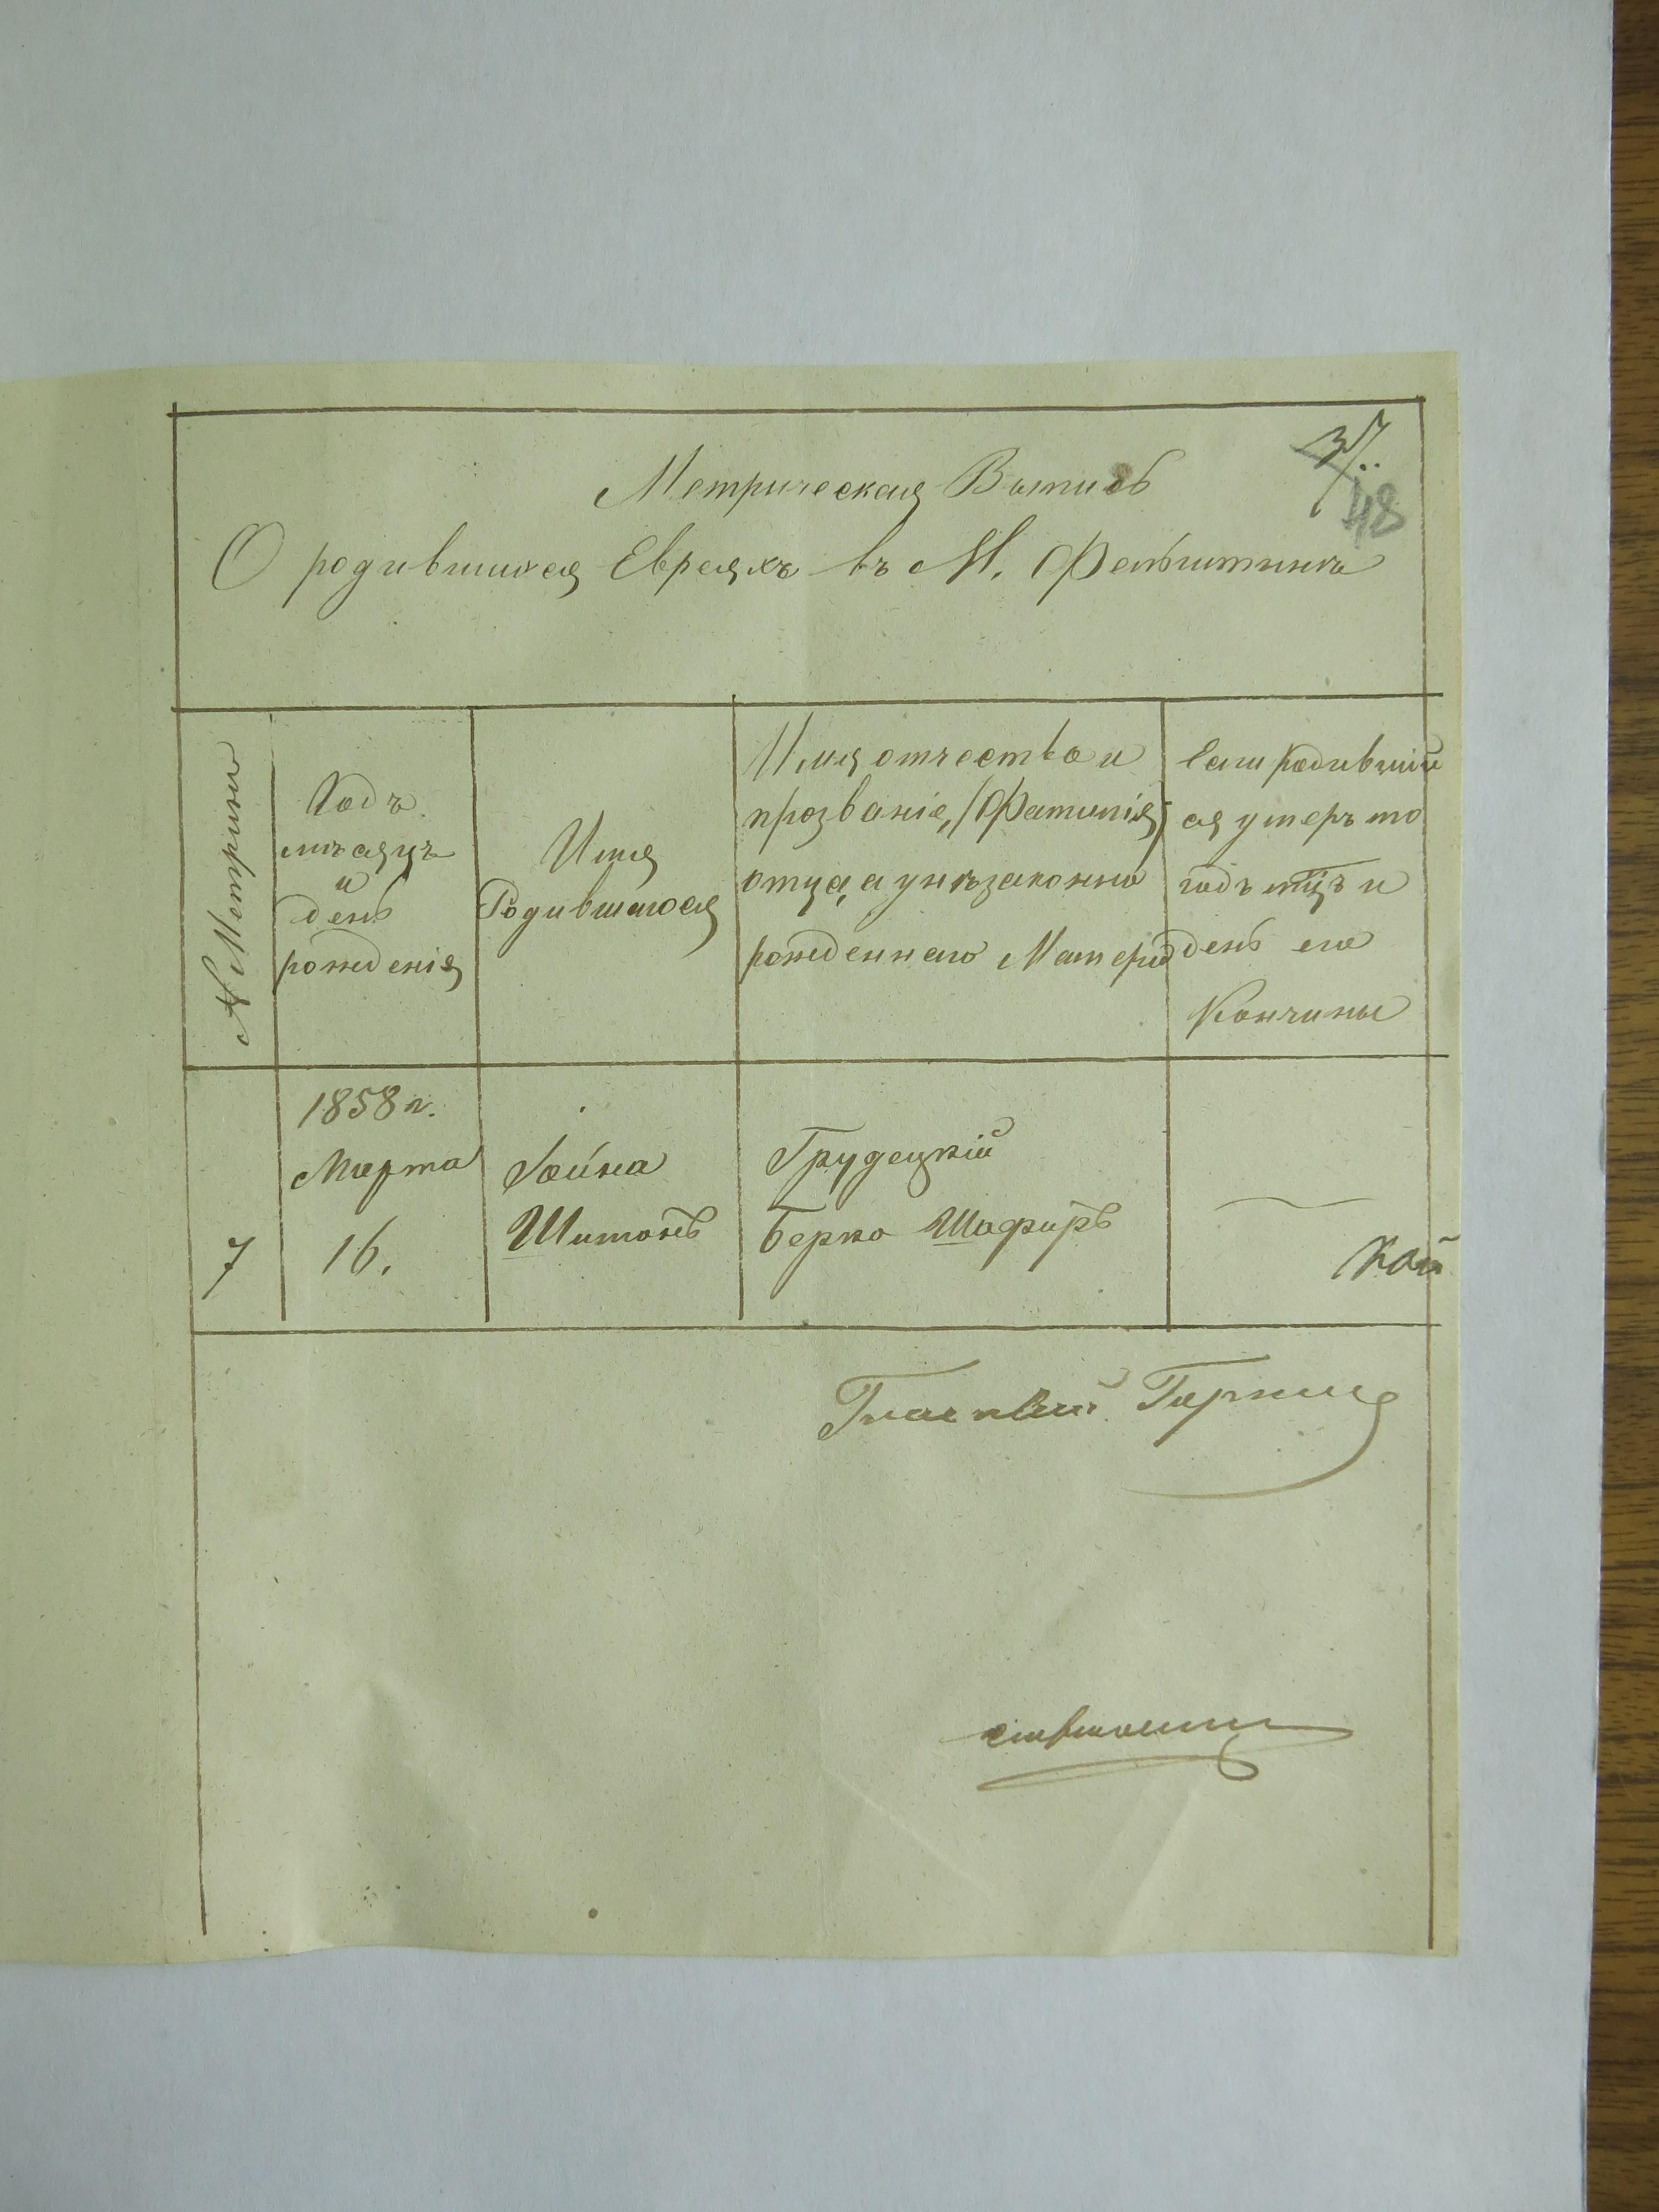 37
48
Метрическая Выпись
О родившихся Евреяхъ въ М. Фельштинъ
№ Метрики
Годъ
мѣсяцъ
и
день
рожденія
Имя
Родившагося
Имя отчество и
прозваніе, /Фамилія/
отца, а у незаконно
рожденнаго Матери
Если родившій
ся умеръ то
годъ мцъ и
день его
Кончины
7
1858 г.
Марта
16.
Шимонъ
Грудецкій
Берко Шафиръ
Кой
Гласный